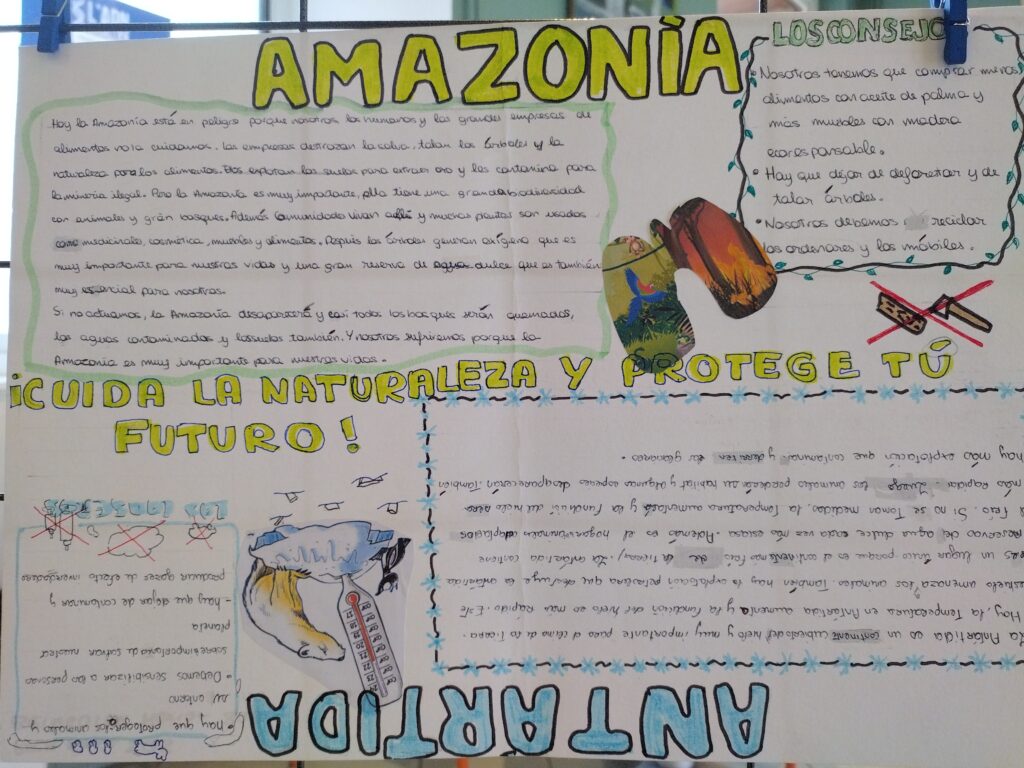 AMAZONÌA
Hoy la Amazonía está en peligro porque nosotros los humanos y las grandes empresas de
alimentos no la cuidamos. Las empresas destrozan la selva, talan los árboles y la
naturaleza para los alimentos. Ellos explotan los suelos para extraer oro y les contamina para
la minería ilegal. Pero la Amazonía es muy importante, ella tiene una grande biodiversidad
con animales y grán bosques. Además comunidades vivan allí y muchas plantas son usadas
como medicinales, cosmética, muebles y alimentos. Después los árboles generan oxígeno que es
muy importante para nuestras vidas y una gran reserva de agua dulce que es también
muy esencial para nosotros.
Si no actuamos, la Amazonía desaparecerá y casi todos los bosques serán quemados,
las aguas contaminadas y los suelos también. Y nosotros sufriremos porque la
Amazonía es muy importante para nuestras vidas.
LOS CONSEJO
• Nosotros tenemos que comprar menos
alimentos con aceite de palma y
más muebles con madera
ecoresponsable.
• Hay que dejar de deforetar y de
talar árboles.
• Nosotros debemos reciclar
los ordenares y los móbiles.
¡CUIDA LA NATURALEZA Y PROTEGE TÚ
FUTURO!
ANTARTIDA
La Antartida es un continente cubierto del hielo y muy importante para el clima de la Tierra.
Hoy, la Temperatures en Antártida aumenta y la fundición del hielo es mas Rapido. Este
amenaza los animales. También hay la explotación petrolera que destruye la antártida
es un lugar único porque es el continente mas frío de la tierra,. La antartida contiene
reservas del agua dulce cada vez más escasa. Además es el hogar animales adaptados
al frío. Si no se Toman medidas, la temperatura aumentará y la fundición del hielo sera
más Rapida. Luego los animales perderán su habitat y algunas especies desaparecerán. También
hay más explotación que contaminan y derriten los glaciares.
• hay que protegerlos animales y
su entorno
• Debemos sensibilizar a las personas
sobre importancia de salvar nuestro
planeta
- hay que dejar de contaminar y
producir gases de efecto invernadero